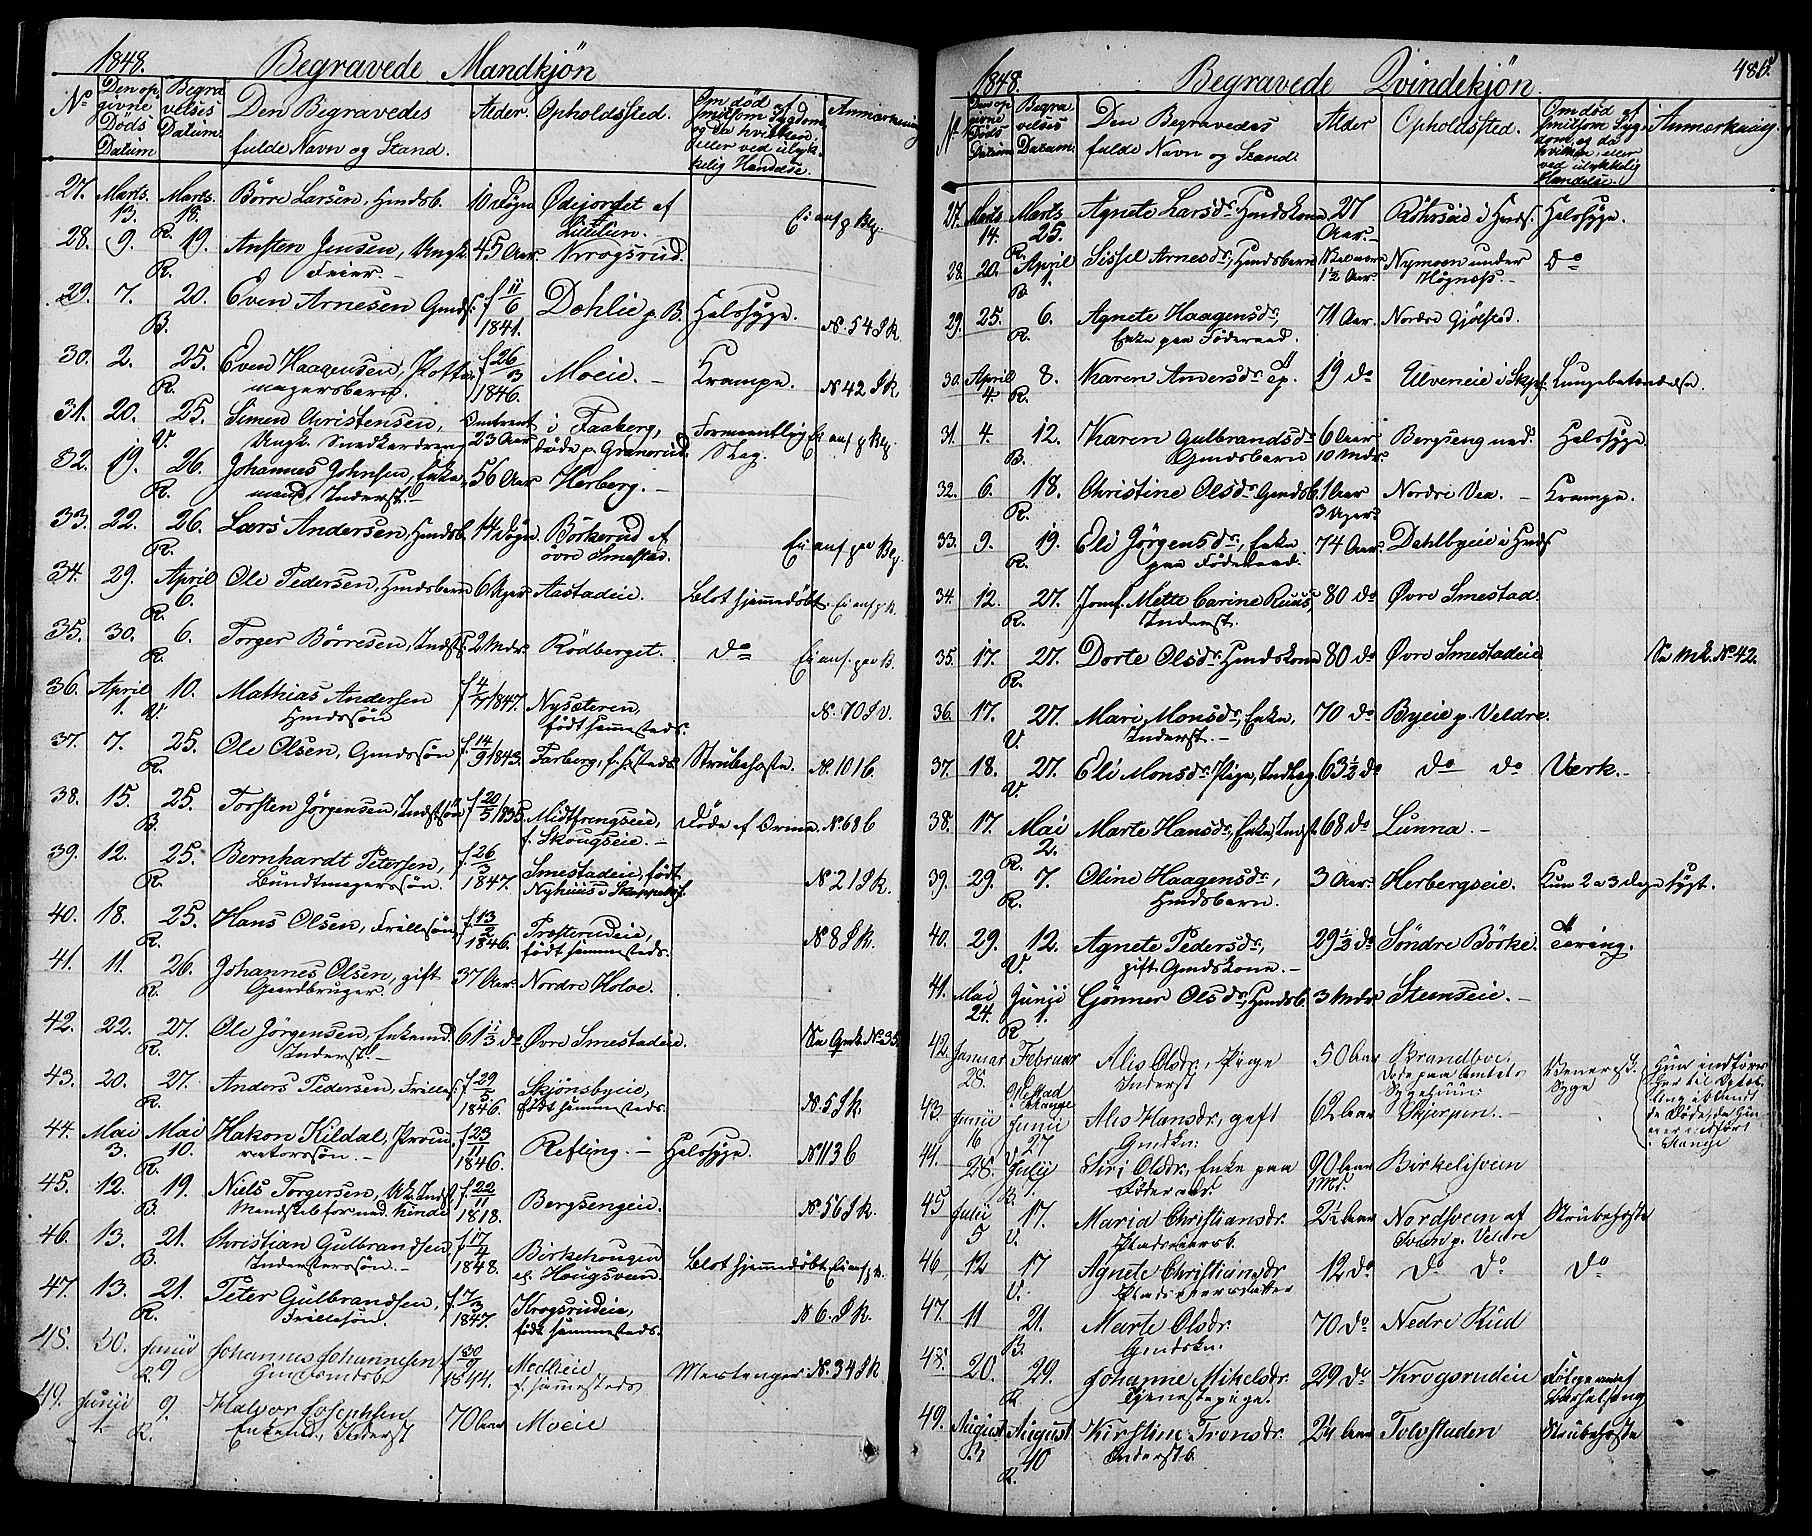 1848. Begravede Mandkjøn
No
Den opgivne Døds Datum
Begravelses Datum.
Den Begravedes fulde Navn og Stand.
Alder.
Opholdssted.
Om død af smitsom Sygdom og da hvilken, eller ved ulykkelig Hændelse.
Anmærkning
27. Marts 13. Marts 18. R. Börre Larsen, Huusb. 10 Døgn Ödejordet af Ei anf. p Bl.
28. 9. 19. R. Ansten Jensen, Ungk. 45 Aar Krogsrud.
29. 7. 20. B. Even Arnesen Gmds. f 11/6 1841. Dahlie p. B. Halssyge. No. 54 S k.
30. 2. 25. R. Even Haagensen, Pottemagersbarn. f 26/3 1846. Moeie. Krampe. No 42 S k.
31. 20. 25. V. Simen Christensen, Ungk. Snedkerdreng Omtrent 23 Aar i Faaberg, døde p. Granerud Formeentlig Slag. Ei anf p Bl.
32. 19. 26. R. Johannes Johnsen, Enkemand, Inderst. 56 Aar Herberg.
33. 22. 26. R. Lars Andersen, Huusb. 14 Døgn Börkerud af övre Smestad. Ei anf paa Bl.
34. 29. April 6. R. Ole Pedersen, Huusbarn 6 Uger Aastadeie. Blot hjemmedøbt. Ei anf p k.
35. 30. 6. R. Torger Börresen, Indsts. 2 Mdr. Rödberget. do Ei anf. paa B.
36. April 1. 10. V. Mathias Andersen Huussön f 4/7 1847. Nysæteren, født sammesteds. No. 70 S v.
37. 7. 25. R. Ole Olsen, Gmdssön f. 14/9 1843. Faaberg, f. h.steds Strubehoste. No. 101 b.
38. 15. 25. B. Torsten Jörgensen, Indstsön f 20/5 1835. Midtfrengseie, f. Skougseie. Døde af Orme. No 68 b
39. 12. 25. R. Bernhardt Petersen, Bundtmagerssön. f. 26/3 1847. Smestadeie, født Nyhuus i No. 21 S k.
40. 18. 25. R. Hans Olsen, Frillesön f. 13/2 1846. Trosterudeie, født sammesteds. No 8 S k.
41. 11. 26. R. Johannes Olsen, gift Gaardbruger. 37 Aar. Nordre Holve.
42. 22. 27. R. Ole Jörgensen, Enkemd. Inderst. 61 1/3 do Øvre Smestadeie. Se Qvk. No 35.
43. 20. 27. R. Anders Pedersen, Frilles. f. 29/5 1846. Skjönsbyeie, født sammesteds. No. 5 S k.
44. Mai 3. Mai 10. R. Hakon Kildal, Procuratorssön. f 23/11 1846. Refling. Halssyge. No 113 b
45. 12. 19. B. Niels Torgersen, f. 22/11 1818. Bergsengeie. No. 56 S k.
46. 13. 21. B. Christian Gulbrandsen, Inderstssön. f 17/4 1848. Birkehougen el. Hougsveen. Blot hjemmedøbt. Ei anf p k.
47. 13. 21. R. Peter Gulbrandsen, Frillesön. f 7/3 1847. Krogsrudeie, født sammesteds. No 6. S k.
48. 30. Junii 9 R. Johannes Johannesen f 30/9 1844. Moelbeie f. sammesteds Mæslinger. No. 34 S k
49. Junii 1. 9 R. Halvor Josephsen Enkemd., Inderst 70 Aar Moeie
1848. Begravede Qvindekjön. 486.
No
Den opgivne Döds Datum
Begravelses Datum.
Den Begravedes fulde Navn og Stand.
Alder
Opholdssted.
Om död af smitsom Sygdom, og da hvilken, eller ved ulykkelig Hændelse.
Anmærkning.
27. Marts 14. Marts 25. R. Agnete Larsdr. Huuskone 27 Aar. Röhrsöd i Huus. Halssyge.
28. 20. April 1. B Sissil Arnesdr., Huusbarn 1 1/2 Aar. Nymoen under Högnass. do
29. 25. 6. R. Agnete Haagensdr., Enke paa Föderaad. 71 Aar. Nordre Gjölstad.
30. April 4. 8. R. Karen Andersdr. Ep. 19 do Ulveneie i Skjefs. Lungebetændelse.
31. 4. 12. B. Karen Gulbrandsdr. Gmdsbarn 6 Aar 10 Mdr. Bergseng ned. Halssyge.
32. 6. 18. R. Christine Olsdr. Gmdsb. 1 Aar 3 Uger. Nordre Vea. Krampe.
33. 9. 19. R. Eli Jörgensdr., Enke paa Föderaad. 74 Aar. Dahlbyeie i Huus
34. 12. 27. R. Jomf. Mette Carine Ruus, Inderst. 80 do Øvre Smestad.
35. 17. 27. R. Dorte Olsdr. Huuskone 80 do Øvre Smestadeie Se Mk. No. 42.
36. 17. 27. V. Mari Monsdr., Enke, Inderst. 70 do Byeie p. Veldre.
37. 18. 27. V. Eli Monsdr. Pige, 63 1/2 do do do Værk.
38. 17. Mai 2. R. Marte Hansdr., Enke, Indst. 68 do Lunna.
39. 29. 7. R. Oline Haagensdr., Huusbarn. 3 Aar. Herbergseie. Kun 2 a 3 dage sygt.
40. 29. 12. V. Agnete Pedersdr., gift Gmdskone. 29 1/3 do Söndre Börke. Tæring.
41. Mai 24. Junii 1. R. Gönner Olsdr., Huusb. 3 Mdr. Steenseie.
42. Januar 28. Februar Alis Olsdr., Pige Inderst 50 Aar Brandboe, døde paa Amtets Sygehuus Venerisk Syge
43. Junii 6 Junii Alis Hansdr., gift Gmdkn: 62 Aar Skjerpen.
44. 28. Julij 1. R. Siri Olsdr., Enke paa Föderaad. 90 Aar Birkelisveen
45 Julii 5 17. V. Maria Christiansdr. 2 1/2 Aar Nordsveen af p. Veldre Strubehoste
46 12 17 V. Agnete Christiansdr. 12 do do do do
47. 11 21. B. Marte Olsdr. Gmdskn: 70 do Nedre Rud
48. 20. 29. R. Johanne Mikelsdr. Tjenestepige. 29 do Krogsrudeie Følgerne af Barselseng
49. August 2 August 10 R. Kirstine Tronsdr. Inderstb. 2 1/4 Aar Tolvstaden Strubehoste